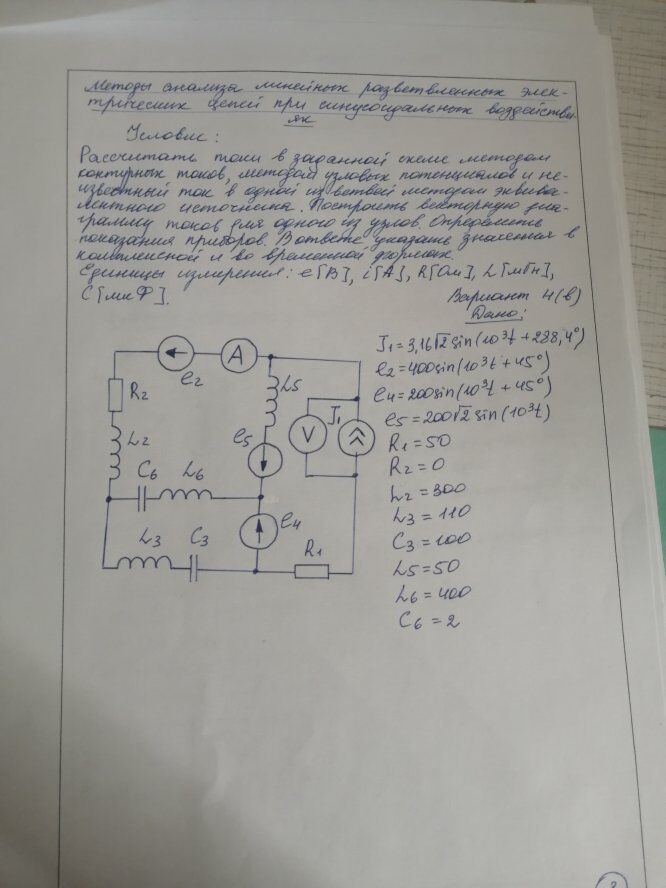 Методы анализа линейных разветвленных элек-
трических цепей при синусоидальных воздействи-
ях
Условие:
Рассчитать токи в заданной схеме методом
контурных токов, методом узловых потенциалов и не-
известный ток в одной из ветвей методом эквива-
лентного источника. Построить векторную диа-
грамму токов для одного из узлов. Определить
показания приборов. В ответе указать значения в
комплексной и во временной формах.
Единицы измерения: e[В], i[А], R[Ом], L[мГн],
C[мкФ].
Вариант 4(в)
Дано:
J1=3,16√2sin(10³t+288,4°)
e2=400sin(10³t+45°)
e4=200sin(10³t+45°)
e5=200√2sin(10³t)
R1=50
R2=0
L2=300
L3=110
C3=100
L5=50
L6=400
C6=2
e2
A
R2
L5
J1
V
e5
L2
C6
L6
e4
L3
C3
R1